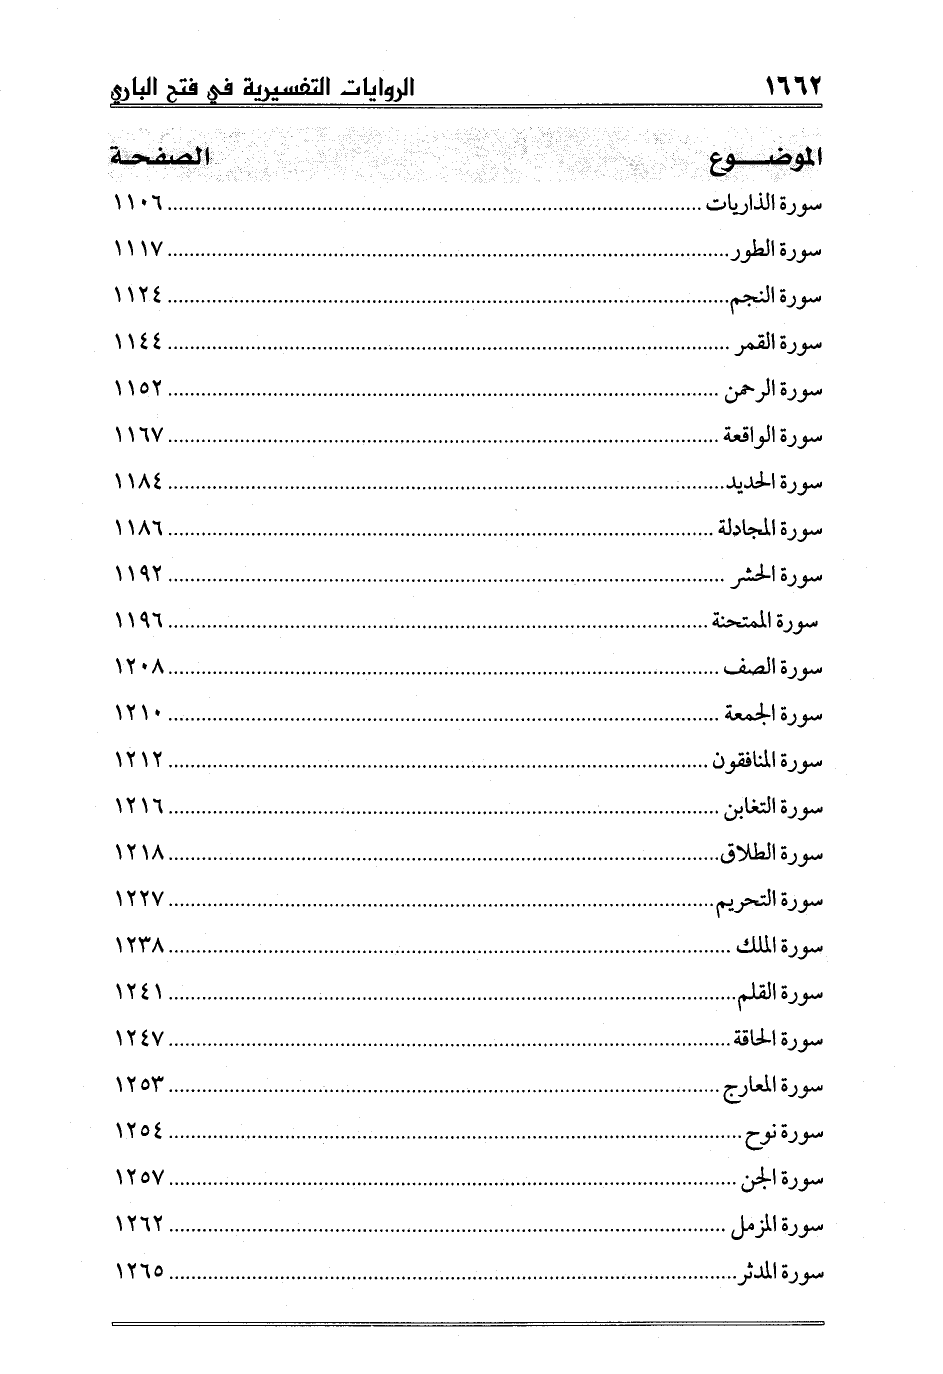 ١٦٦٢ الروايات التفسيرية في فتح الباري
الموضـــوع الصفحـة
سورة الذاريات ........ ١١٠٦
سورة الطور ........ ١١١٧
سورة النجم ........ ١١٢٤
سورة القمر ........ ١١٤٤
سورة الرحمن ........ ١١٥٢
سورة الواقعة ........ ١١٦٧
سورة الحديد ........ ١١٨٤
سورة المجادلة ........ ١١٨٦
سورة الحشر ........ ١١٩٢
سورة الممتحنة ........ ١١٩٦
سورة الصف ........ ١٢٠٨
سورة الجمعة ........ ١٢١٠
سورة المنافقون ........ ١٢١٢
سورة التغابن ........ ١٢١٦
سورة الطلاق ........ ١٢١٨
سورة التحريم ........ ١٢٢٧
سورة الملك ........ ١٢٣٨
سورة القلم ........ ١٢٤١
سورة الحاقة ........ ١٢٤٧
سورة المعارج ........ ١٢٥٣
سورة نوح ........ ١٢٥٤
سورة الجن ........ ١٢٥٧
سورة المزمل ........ ١٢٦٢
سورة المدثر ........ ١٢٦٥